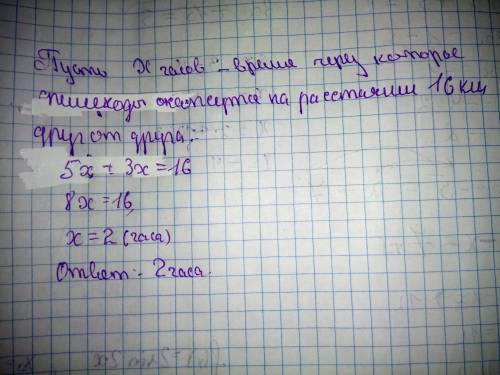 Пусть x часов - время через которое
пешеходы окажутся на расстоянии 16 км
друг от друга:
5x + 3x = 16
8x = 16,
x = 2 (часа)
Ответ: 2 часа.